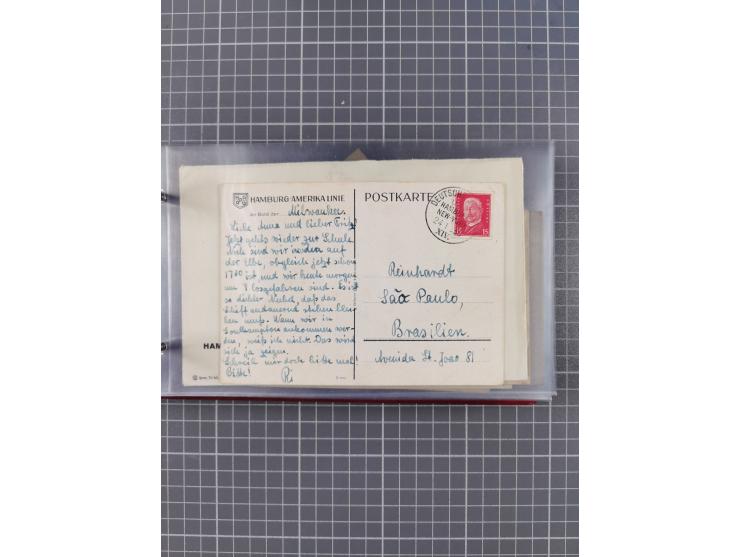 HAMBURG-AMERIKA LINIE
An Bord der Milwaukee.
Liebe Anna und lieber Fritz!
Jetzt gehts wieder zur Schule.
Noch sind wir auf
der Elbe, obgleich jetzt schon
1700 ist, und wir heute morgen
um 8 losgefahren sind. Es ist
so dichter Nebel, daß das
Schiff andauernd stehen blei-
ben muß. Wann wir in
Southampton ankommen wer-
den, weiß ich nicht. Das wird
sich ja zeigen.
Schreib mir doch bitte mal!
Bitte!
Ri
POSTKARTE
DEUTSCH
NEW-Y
24.1.
XIV
15 15
Reinhardt
São Paulo,
Brasilien.
Avenida St. Joao 81
HAM